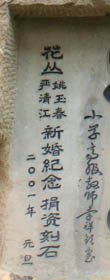 小学高级教师
花丛
姚玉春
严清江
新婚纪念 捐资刻石
二〇〇一年 元旦